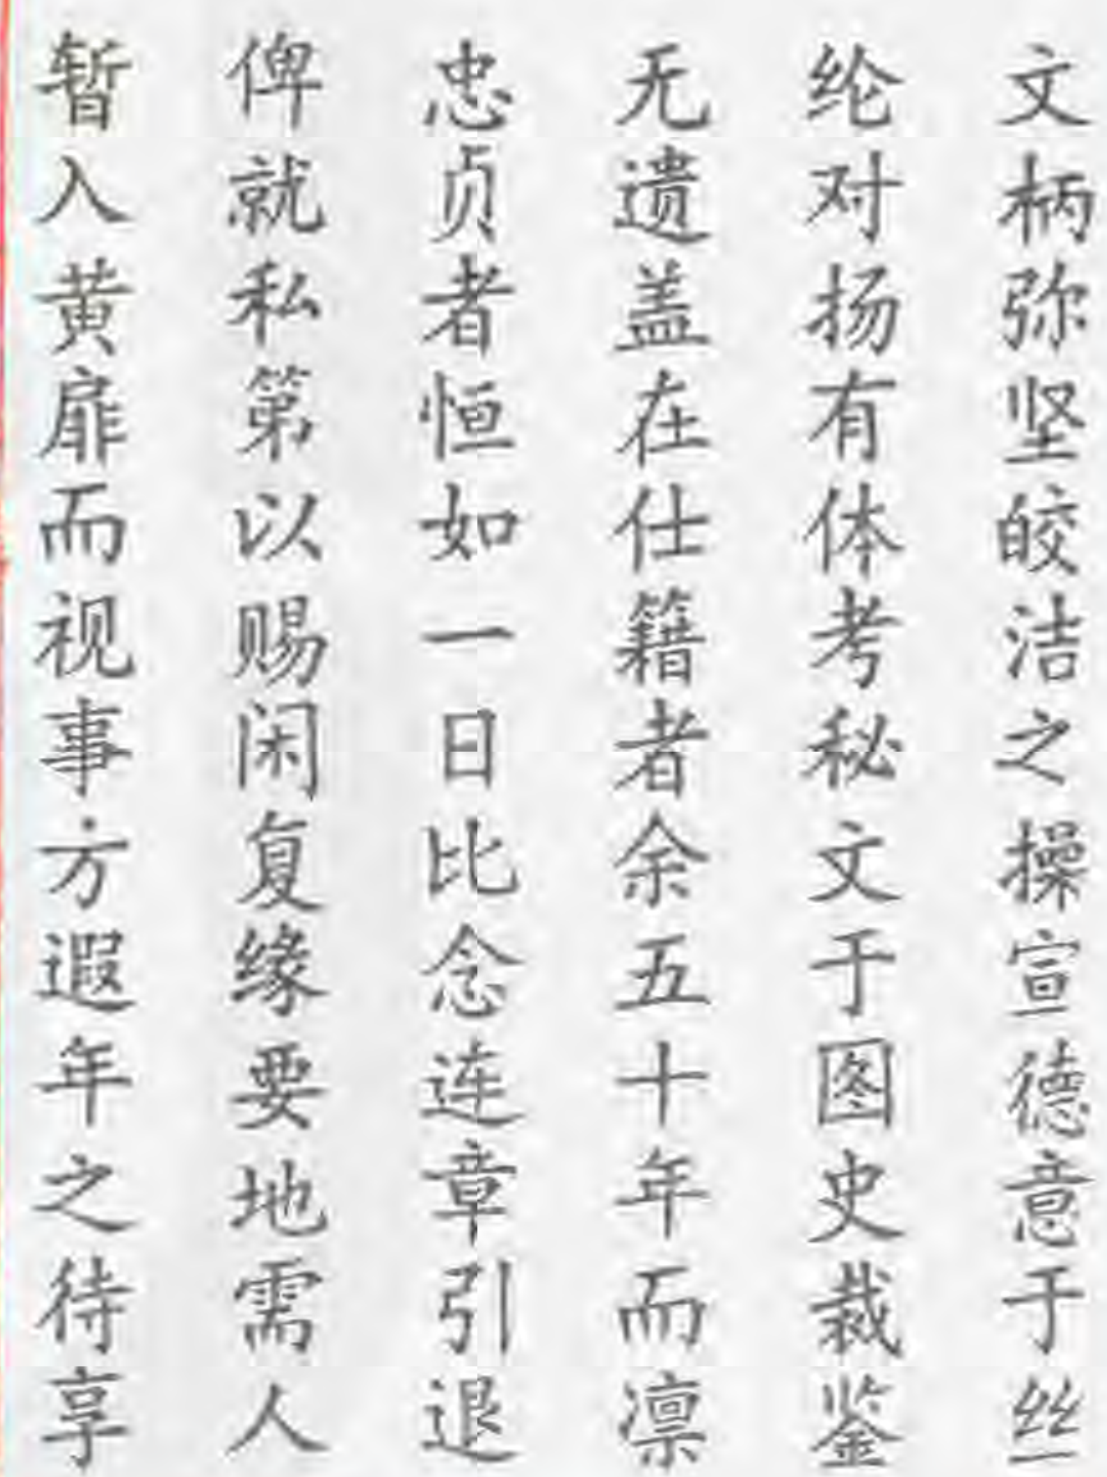 文柄弥坚皎洁之操宣德意于丝
纶对扬有体考秘文于图史裁鉴
无遗盖在仕籍者余五十年而凛
忠贞者恒如一日比念连章引退
俾就私第以赐闲复缘要地需人
暂入黄扉而视事方遐年之待享